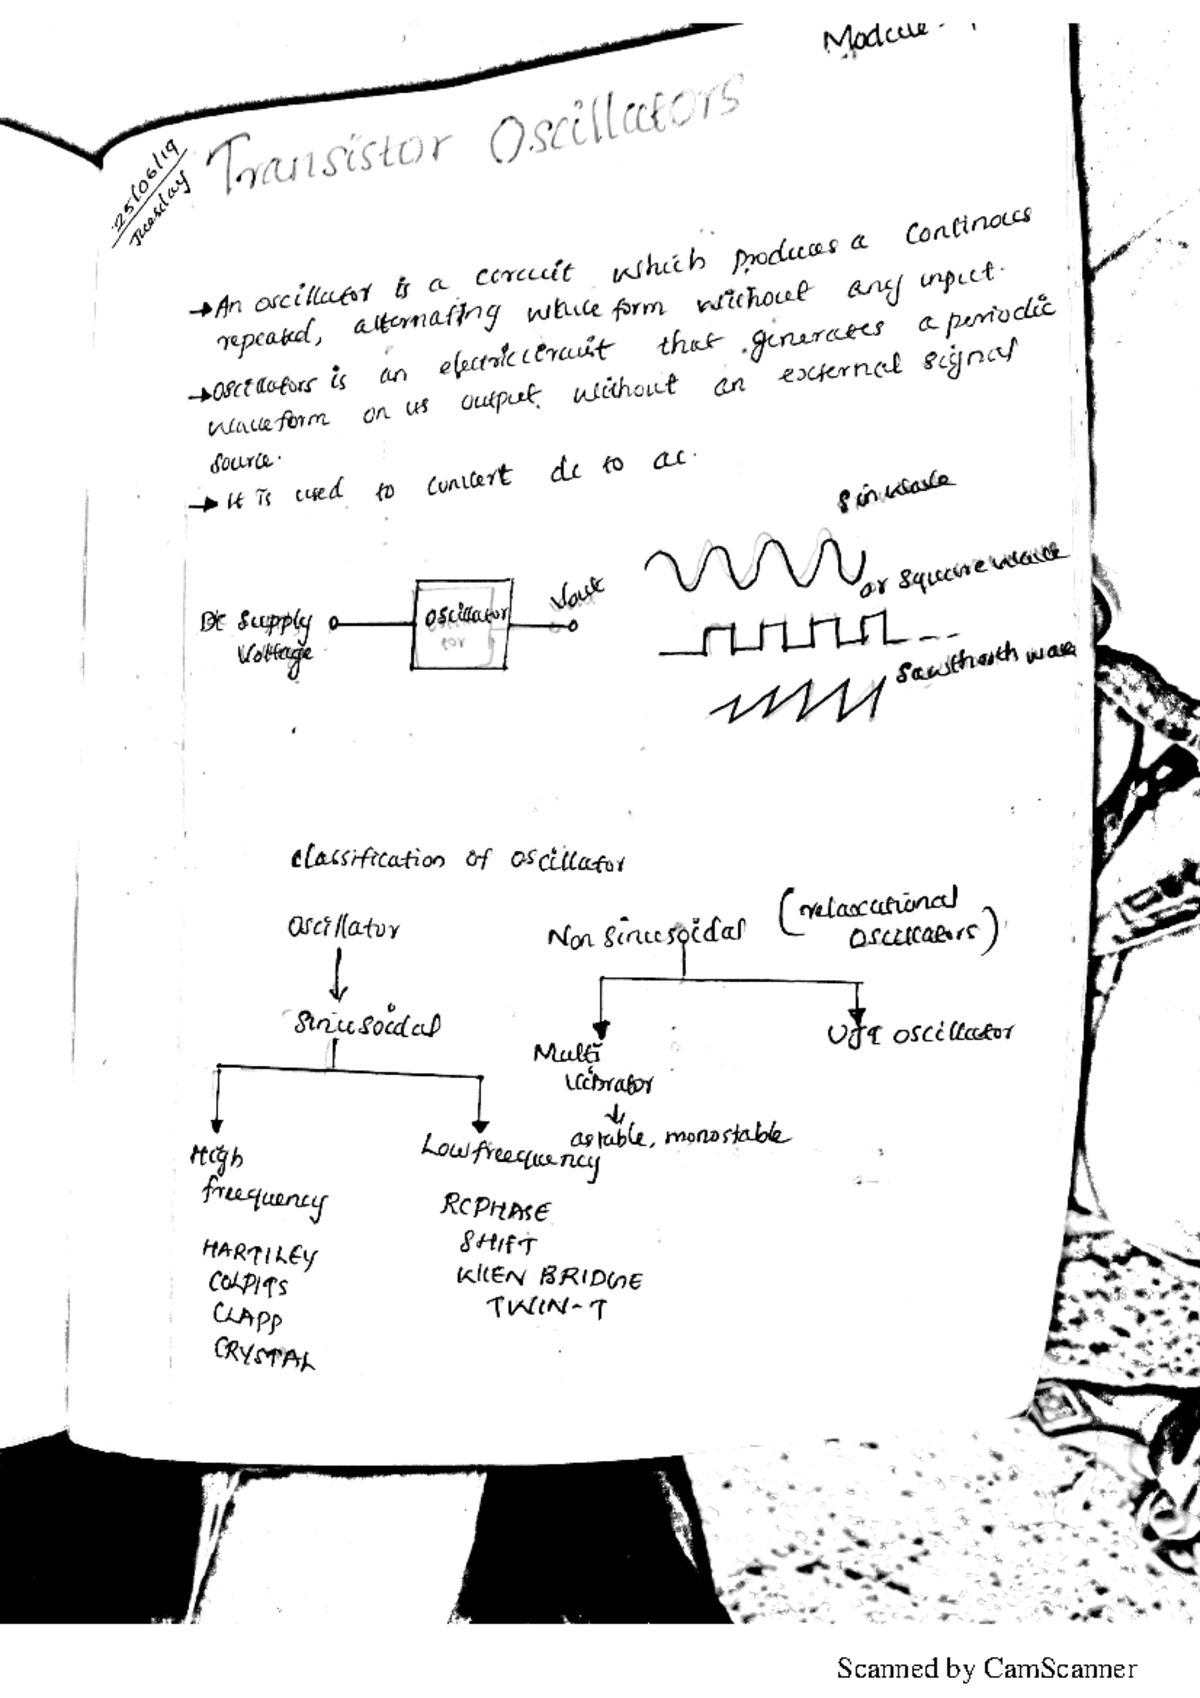 Module -
25/06/19
Tuesday
Transistor Oscillators
→ An oscillator is a circuit which produces a continous
repeated, alternating wave form without any input.
→ oscillators is an electric circuit that generates a periodic
waveform on its output without an external signal
source.
→ It is used to convert dc to ac.
sin wave
or square wave
sawthooth wave
DC Supply
Voltage
oscillator
Vout
classification of oscillator
oscillator
Non sinusoidal (relaxational
oscillators)
sinusoidal
UJT oscillator
Multi
vibrator
astable, monostable
High
freequency
Low freequency
HARTILEY
COLPITS
CLAPP
CRYSTAL
RC PHASE
SHIFT
WIEN BRIDGE
TWIN-T
Scanned by CamScanner